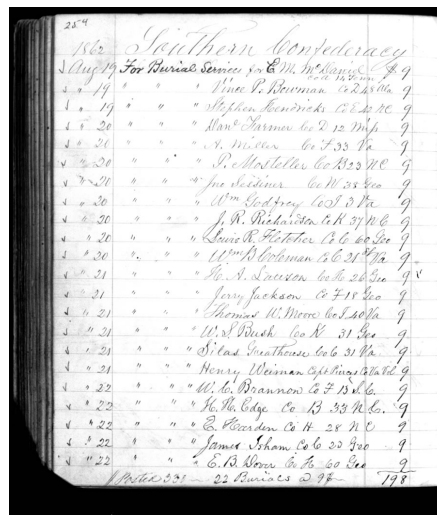 254
1862 Southern Confederacy
Aug 19 For Burial Services for E. M. McDaniel Co H 14 Tenn $ 9
" 19 " " " Vince P. Bowman Co D 48 Ala 9
" 19 " " " Stephen Hendricks Co E 42 NC 9
" 20 " " " Danl Farmer Co D 12 Miss 9
" 20 " " " A. Miller Co F 33 Va 9
" 20 " " " P. Mosteller Co B 23 NC 9
" 20 " " " Jno Co H 38 Geo 9
" 20 " " " Wm Godfrey Co I 3 Va 9
" 20 " " " J. R. Richardson Co K 37 N.C 9
" 20 " " " Lewis R. Fletcher Co C. 60 Geo 9
" 20 " " " Wm B Coleman Co C 21st Va 9
" 21 " " " H. A. Co H 26 Geo 9
" 21 " " " Jerry Jackson Co F 18 Geo 9
" 21 " " " Thomas W. Moore Co I. 40 Va 9
" 21 " " " W. S Bush Co K 31 Geo 9
" 21 " " " Silas Greathouse Co C 31 Va 9
" 21 " " " Henry Weiman Capt Co Va Vol 9
" 22 " " " W. C. Brannon Co F 13 S. C. 9
" 22 " " " H. H. Edge Co B 33 N C. 9
" 22 " " " E. Harden Co H 28 N C 9
" 22 " " " James Isham Co C 23 Geo 9
" 22 " " " E. B. Dover Co H 60 Geo 9
Posted 331 22 Burials @ 9 198